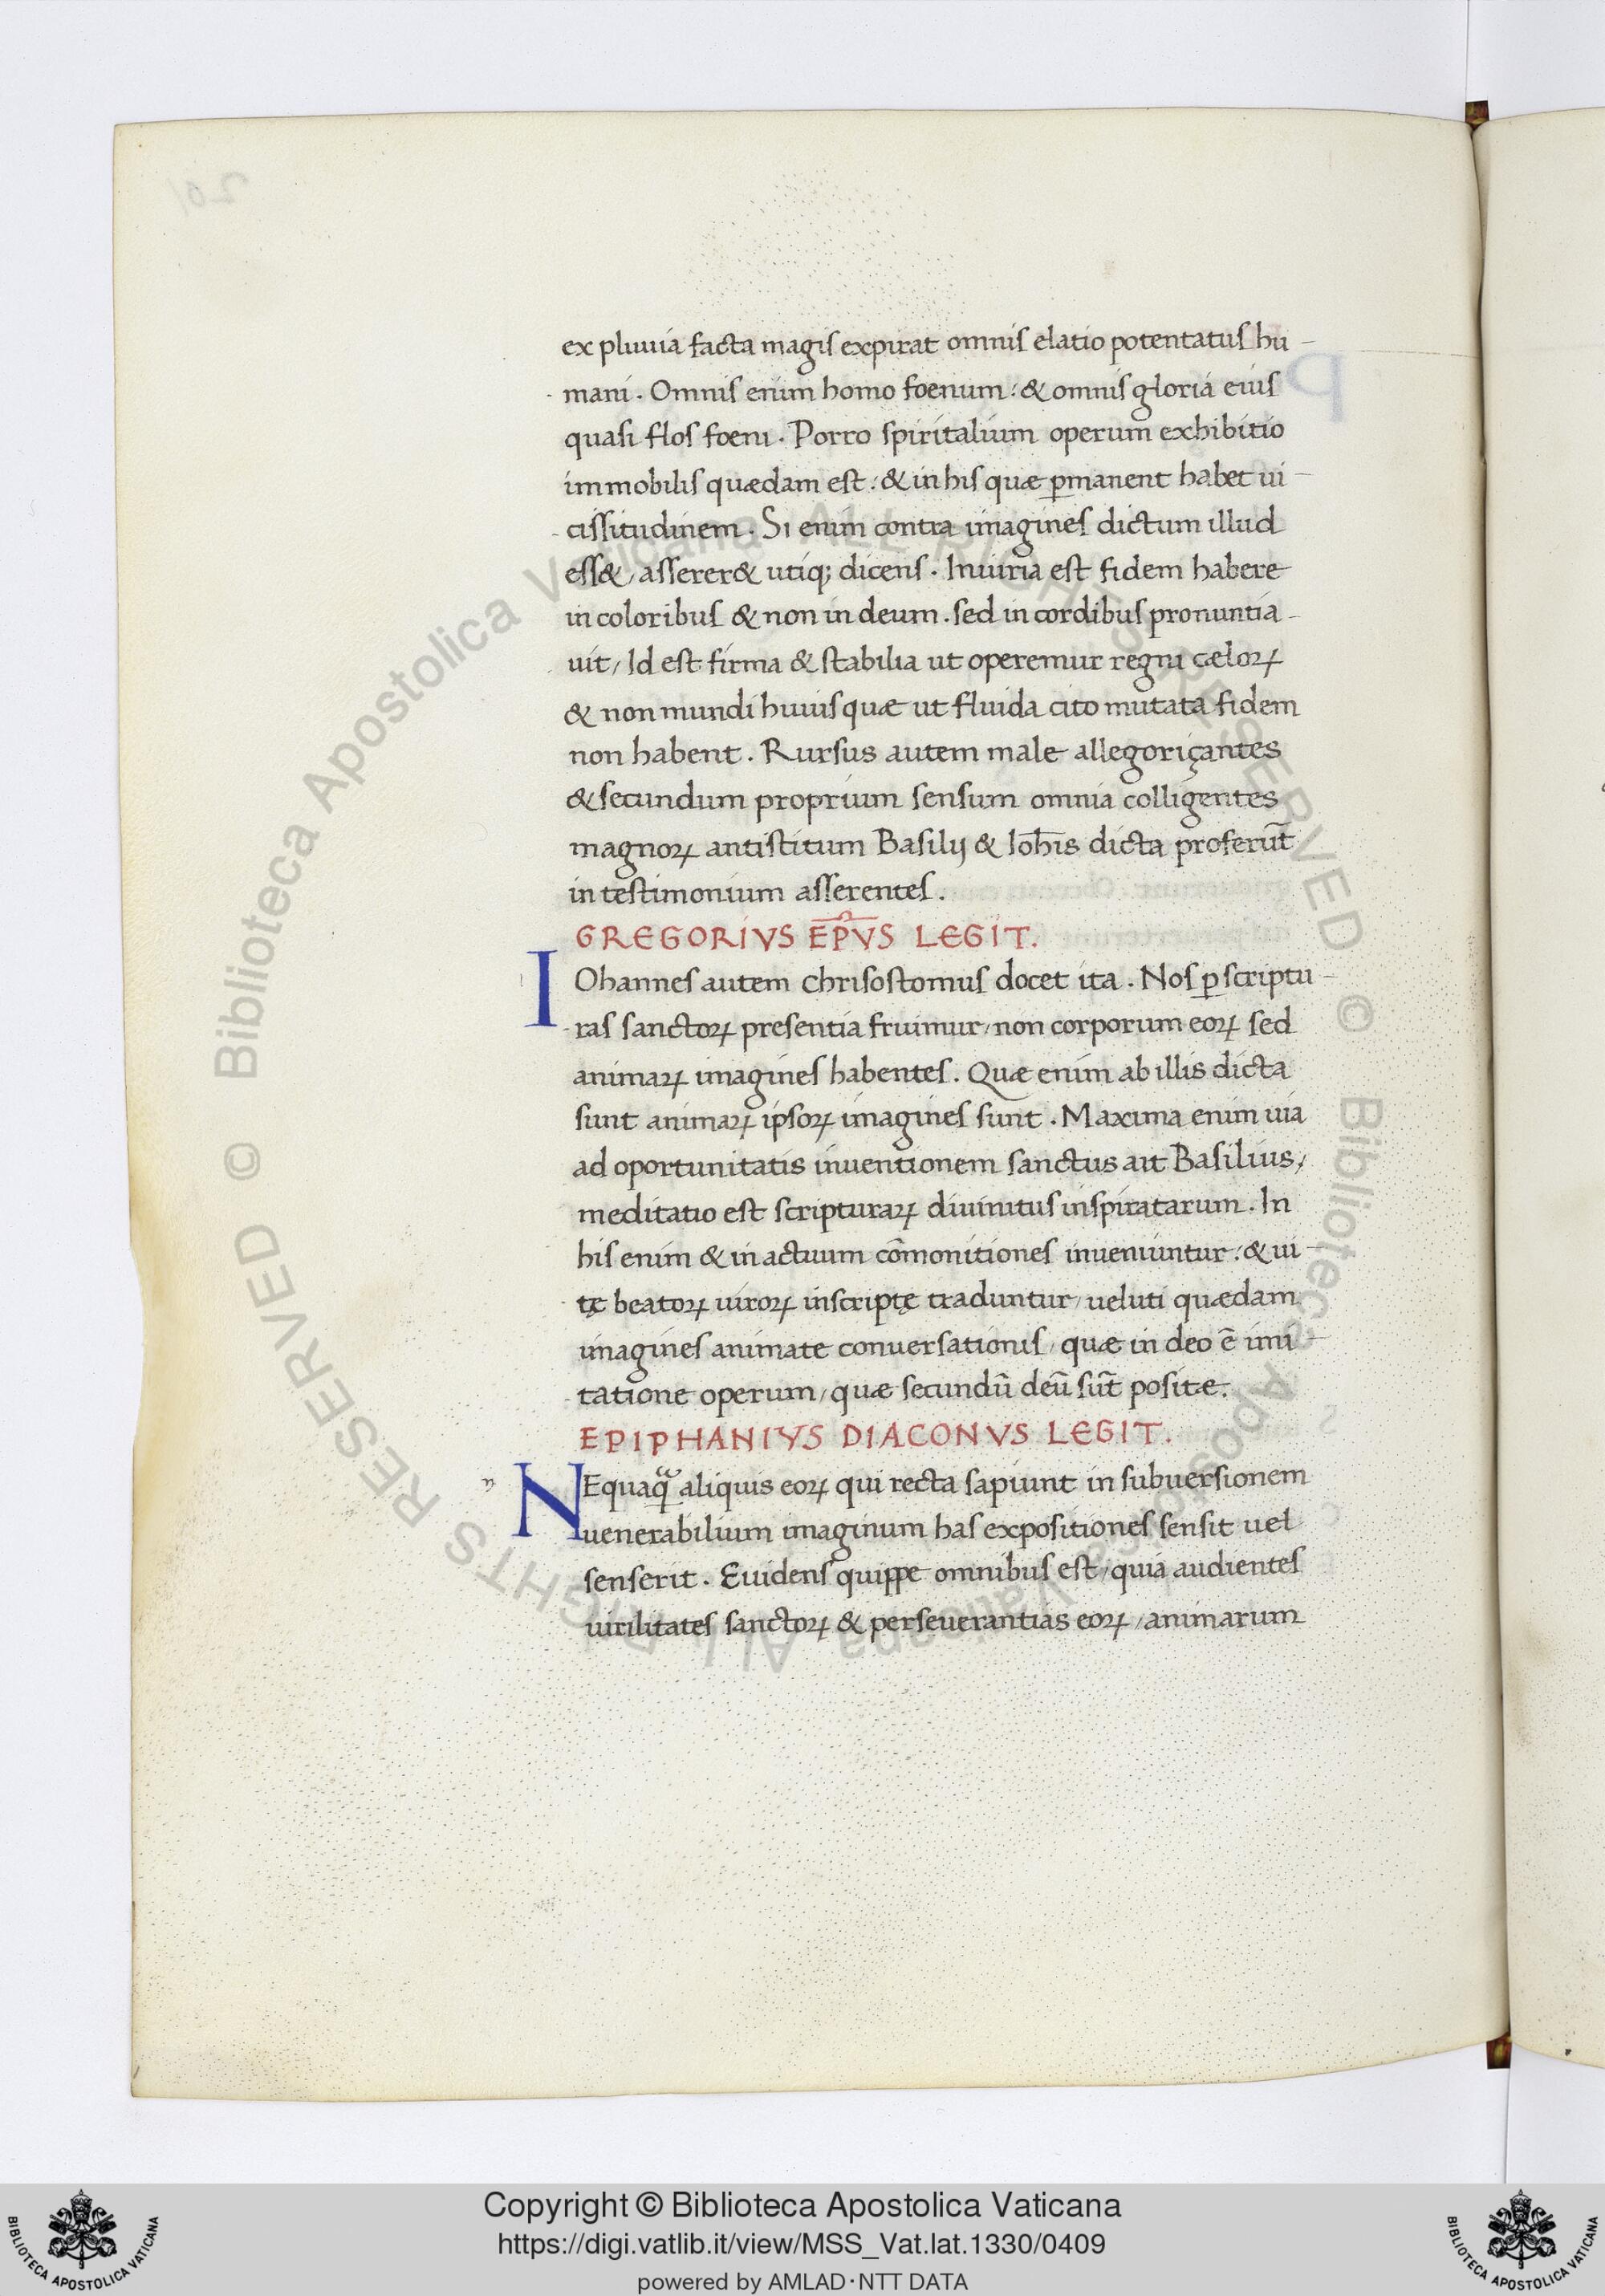 ex pluuia facta magis expirat omnis elatio potentatus hu-
mani. Omnis enim homo foenum: & omnis gloria eius
quasi flos foeni. Porro spiritalium operum exhibitio
immobilis quædam est: & in his quæ ꝑmanent habet ui-
cissitudinem. Si enim contra imagines dictum illud
ess&, asserer& utiq; dicens. Iniuria est fidem habere
in coloribus & non in deum. sed in cordibus pronuntia-
uit, Id est firma & stabilia ut operemur regni cæloꝝ
& non mundi huius quæ ut fluida cito mutata fidem
non habent. Rursus autem male allegoriçantes
& secundum proprium sensum omnia colligentes
magnoꝝ antistitum Basilij & Ioh̄is dicta proferūt
in testimonium asserentes.
GREGORIVS EP̄VS LEGIT.
IOhannes autem chrisostomus docet ita. Nos ꝑ scriptu-
ras sanctoꝝ presentia fruimur, non corporum eoꝝ sed
animaꝝ imagines habentes. Quæ enim ab illis dicta
sunt animaꝝ ipsoꝝ imagines sunt. Maxima enim uia
ad oportunitatis inuentionem sanctus ait Basilius,
meditatio est scripturaꝝ diuinitus inspiratarum. In
his enim & in actuum cōmonitiones inueniuntur: & ui-
tę beatoꝝ uiroꝝ inscriptę traduntur, ueluti quædam
imagines animate conuersationis, quæ in deo ē imi-
tatione operum, quæ secundū deū sūt positæ.
EPIPHANIVS DIACONVS LEGIT.
n
NEquaꝗᷓ aliquis eoꝝ qui recta sapiunt in subuersionem
uenerabilium imaginum has expositiones sensit uel
senserit. Euidens quippe omnibus est, quia audientes
uirilitates sanctoꝝ & perseuerantias eoꝝ, animarum
© Biblioteca Apostolica Vaticana ALL RIGHTS RESERVED © Biblioteca Apostolica Vaticana ALL RIGHTS RESERVED
Copyright © Biblioteca Apostolica Vaticana
https://digi.vatlib.it/view/MSS_Vat.lat.1330/0409
powered by AMLAD·NTT DATA
BIBLIOTECA APOSTOLICA VATICANA
BIBLIOTECA APOSTOLICA VATICANA